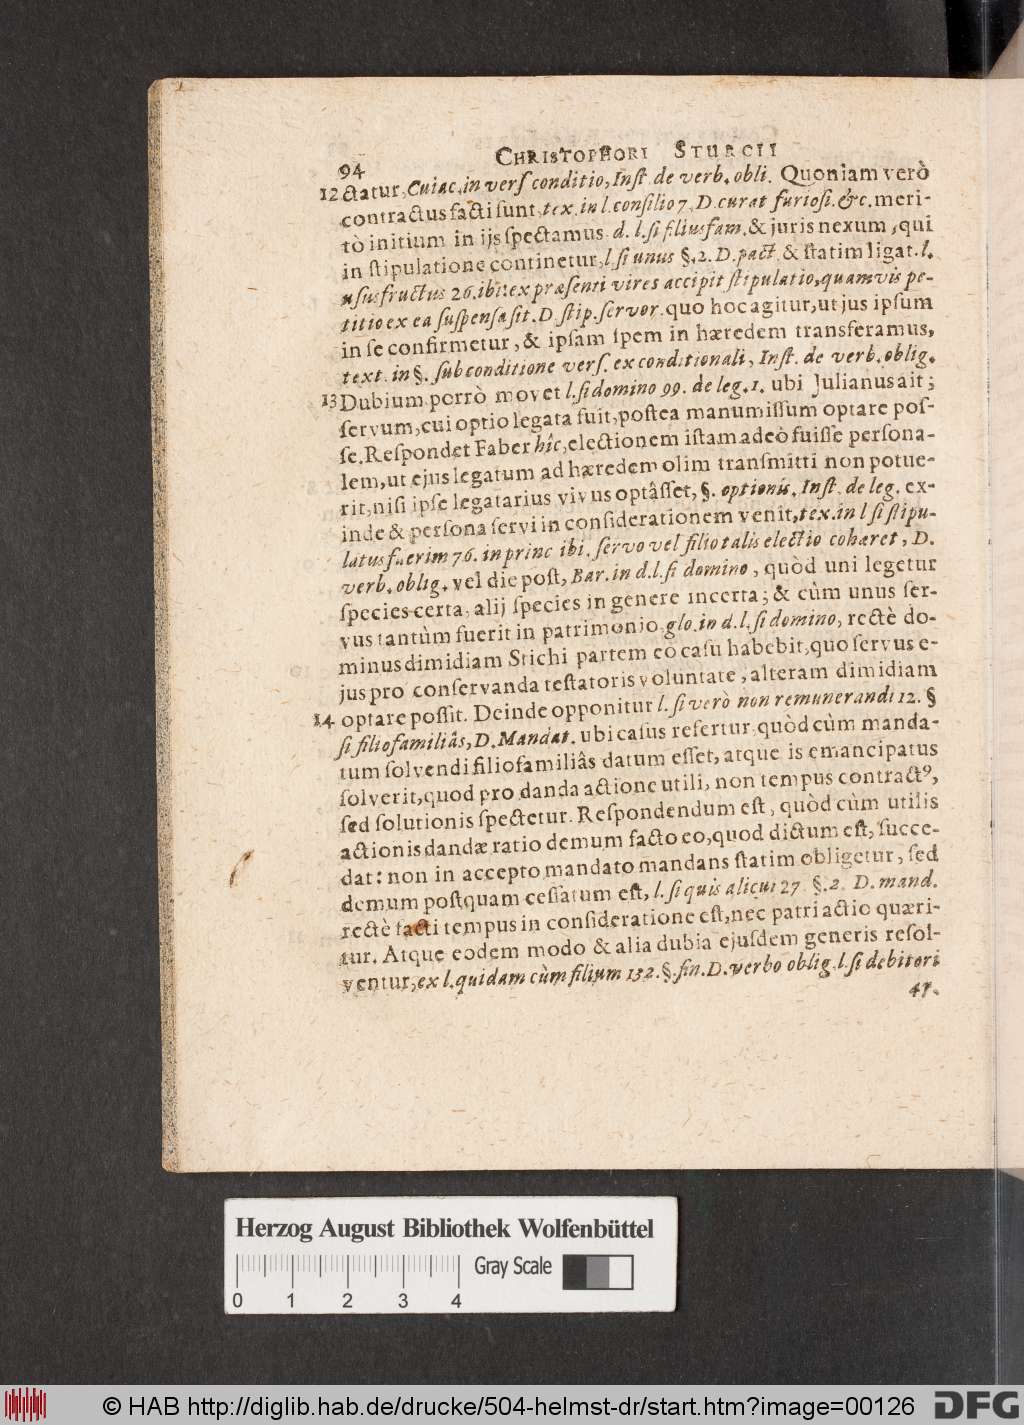 94 CHRISTOPHORI STURCII
12 ctatur, Cuiac. in vers conditio, Inst. de verb. obli. Quoniam verò
contractus facti sunt, tex. in l. consilio 7. D. curat furiosi. &c. meri-
tò initium in ijs spectamus d. l. si filiusfam. & juris nexum, qui
in stipulatione continetur, l si unus §. 2. D. pact. & statim ligat. l.
ususfructus 26. ibi: ex præsenti vires accipit stipulatio, quamvis pe-
titio ex ea suspensa sit. D stip. servor. quo hoc agitur, ut jus ipsum
in se confirmetur, & ipsam spem in hæredem transferamus,
text. in §. sub conditione vers. ex conditionali, Inst. de verb. oblig.
13 Dubium porrò movet l. si domino 99. de leg. 1. ubi Julianus ait;
servum, cui optio legata fuit, postea manumissum optare pos-
se. Respondet Faber hîc, electionem istam adeò fuisse persona-
lem, ut ejus legatum ad hæredem olim transmitti non potue-
rit, nisi ipse legatarius vivus optâsset, §. optionis. Inst. de leg. ex-
inde & persona servi in considerationem venit, tex. in l si stipu-
latus fuerim 76. in princ ibi. servo vel filio talis electio cohæret, D.
verb. oblig. vel die post, Bar. in d. l. si domino, quòd uni legetur
species certa, alij species in genere incerta; & cùm unus ser-
vus tantùm fuerit in patrimonio, glo. in d. l. si domino, rectè do-
minus dimidiam Stichi partem eo casu habebit, quo servus e-
jus pro conservanda testatoris voluntate, alteram dimidiam
14 optare possit. Deinde opponitur l. si verò non remunerandi 12. §
si filiofamiliâs, D. Mandat. ubi casus refertur, quòd cùm manda-
tum solvendi filiofamiliâs datum esset, atque is emancipatus
solverit, quod pro danda actione utili, non tempus contractꝰ,
sed solutionis spectetur. Respondendum est, quòd cùm utilis
actionis dandæ ratio demum facto eo, quod dictum est, succe-
dat: non in accepto mandato mandans statim obligetur, sed
demum postquam cessatum est, l. si quis alicui 27 §. 2. D. mand.
rectè facti tempus in consideratione est, nec patri actio quæri-
tur. Atque eodem modo & alia dubia ejusdem generis resol-
ventur, ex l. quidam cùm filium 132. §. fin. D. verbo oblig. l. si debitori
41.
Herzog August Bibliothek Wolfenbüttel
Gray Scale
0 1 2 3 4
© HAB http://diglib.hab.de/drucke/504-helmst-dr/start.htm?image=00126
DFG